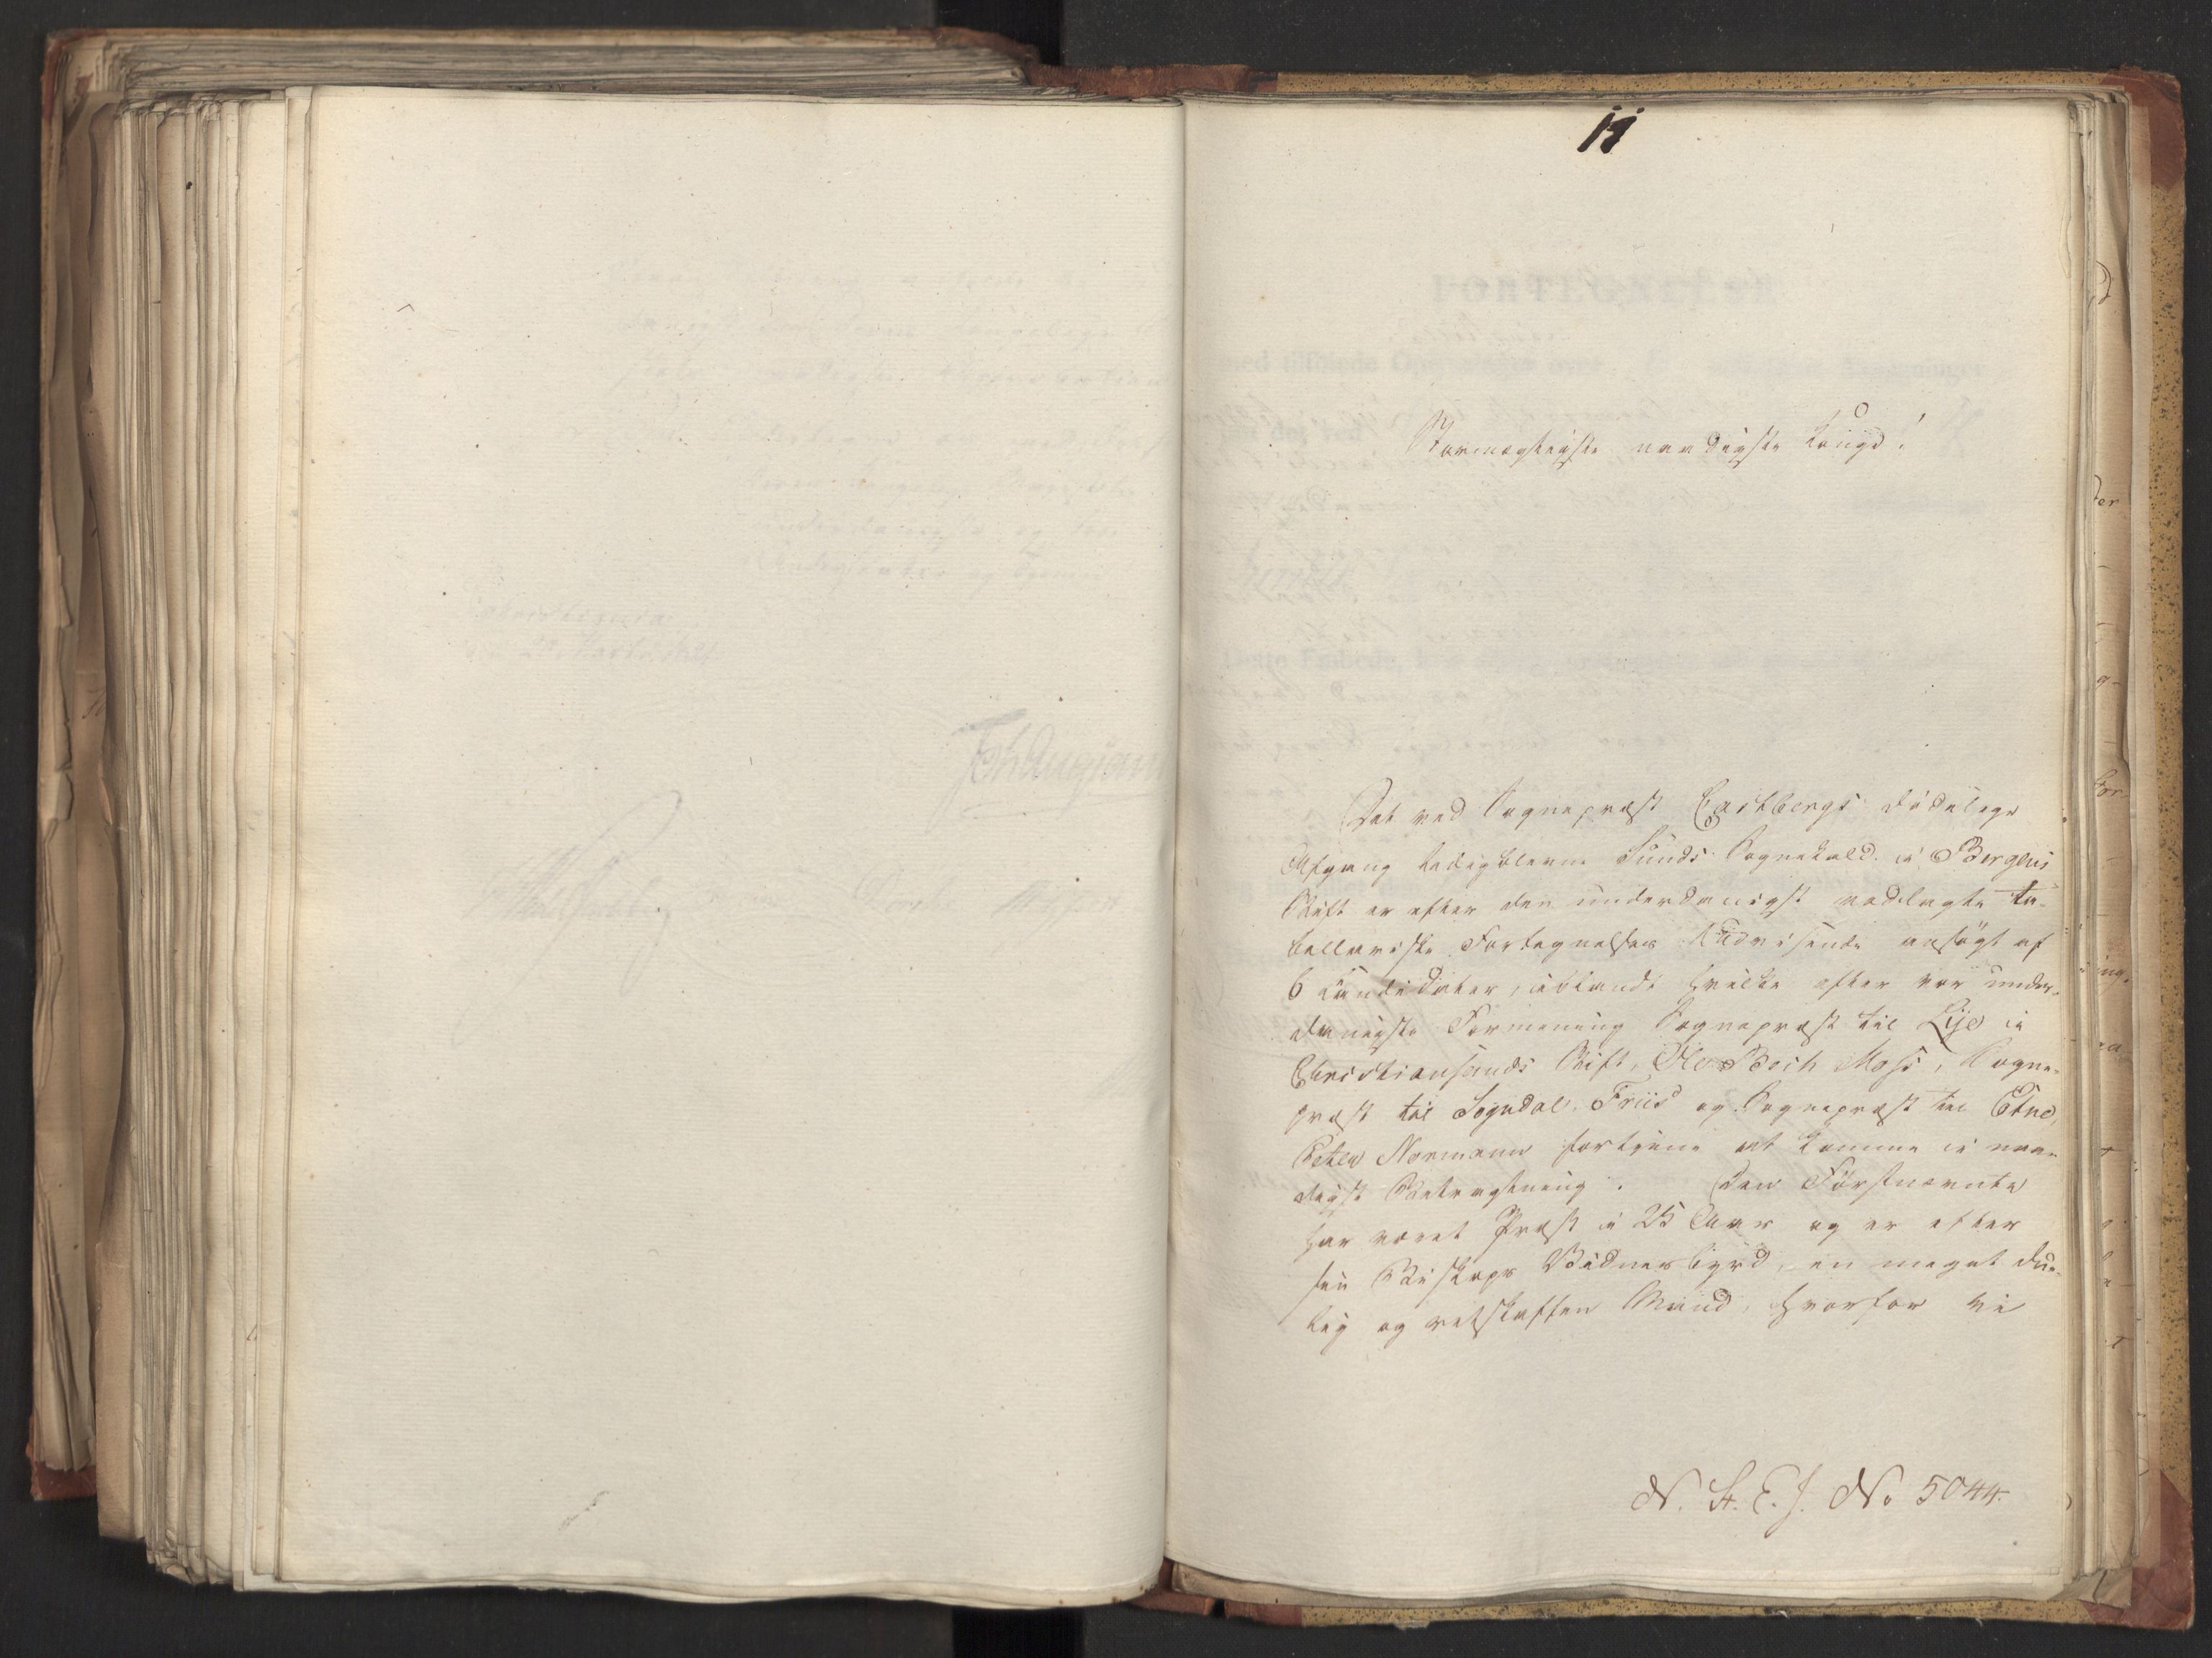 11
Stormægtigste naadigste Konge!
Det ved Sognepræst Castbergs dødelige
Afgang ledigblevne Sunds Sognekald i Bergens
Stift er efter den underdanigst vedlagte ta-
bellariske Fortegnelses Udvisende ansøgt af
6 Candidater, iblandt hvilke efter vor under-
danigste Formening Sognepræst til Lye i
Christiansands Stift, Ole Bech Moss, Sogne-
præst til Sogndal, Friis og Sognepræst til Etne,
Peter Normann fortjene at komme i naa-
digst Betragtning. Den Förstnævnte
har været Præst i 25 Aar og er efter
sin Biskops Vidnesbyrd, en meget due-
lig og retskaffen Mand, hvorfor vi
N. St. E. J. No 5044.